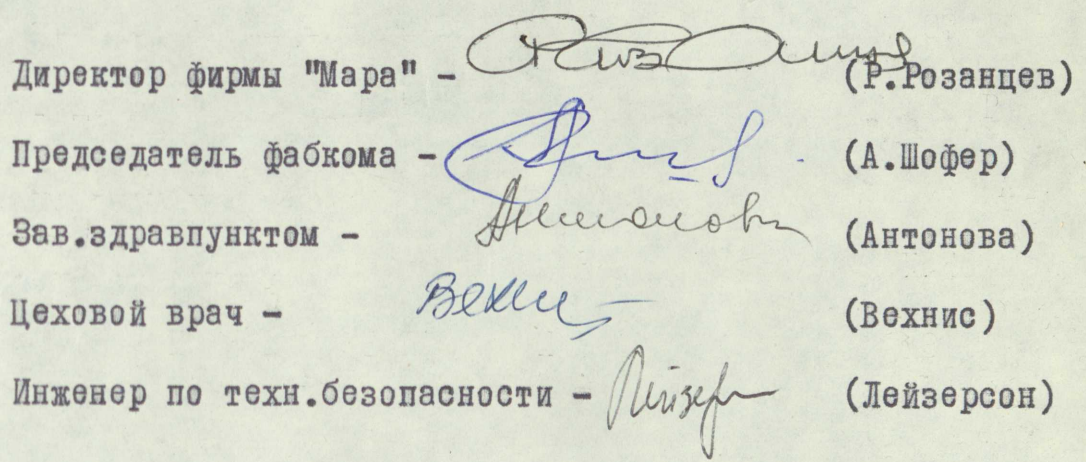 Директор фирмы "Мара" - (Р.Розанцев)
Председатель фабкома - (А.Шофер)
Зав.здравпунктом - Антонова (Антонова)
Цеховой врач - (Вехнис)
Инженер по техн.безопасности - (Лейзерсон)